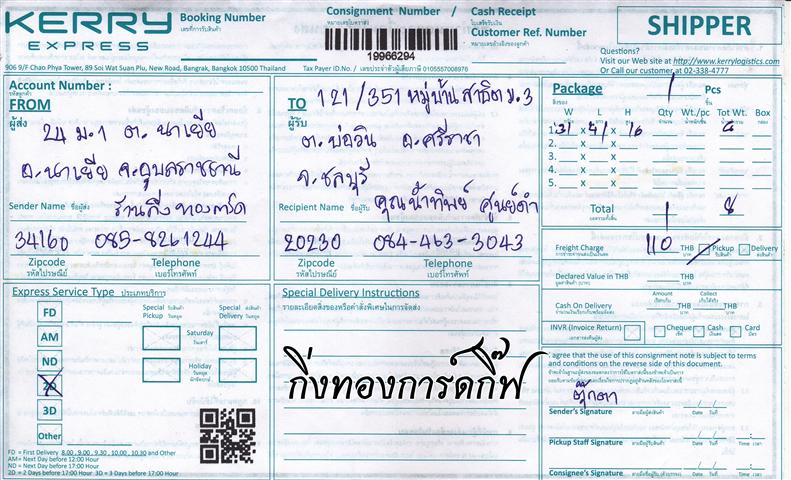 KERRY
EXPRESS
Booking Number
เลขที่การรับสินค้า
Consignment Number /
หมายเลขใบตราส่ง
Cash Receipt
ใบเสร็จรับเงิน
Customer Ref. Number
หมายเลขอ้างอิงของลูกค้า
SHIPPER
19966294
906 9/F Chao Phya Tower, 89 Soi Wat Suan Plu, New Road, Bangrak, Bangkok 10500 Thailand
Tax Payer ID.No. / เลขประจำตัวผู้เสียภาษี 0105557008976
Questions?
Visit our Web site at http://www.kerrylogistics.com
Or Call our customer at 02-338-4777
Account Number :
รหัสลูกค้า
FROM
ผู้ส่ง
24 ม.1 ต. นาเยีย
อ.นาเยีย จ.อุบลราชธานี
Sender Name ชื่อผู้ส่ง
ร้านกิ่งทองการ์ด
34160 085-8261244
Zipcode
รหัสไปรษณีย์
Telephone
เบอร์โทรศัพท์
TO
ผู้รับ
121/351 หมู่บ้าน สาธิต ม.3
ต. บ่อวิน อ. ศรีราชา
จ. ชลบุรี
Recipient Name ชื่อผู้รับ
คุณน้ำทิพย์ ศูนย์ดำ
20230 084-463-3043
Zipcode
รหัสไปรษณีย์
Telephone
เบอร์โทรศัพท์
Package 1 Pcs
สิ่งของ ชิ้น
W L H Qty Wt./pc Tot Wt. Box
1. x x
2. x x
3. x x
4. x x
5. x x
Total 1 8
Freight Charge 110 THB Pickup Delivery
Declared Value in THB THB
Amount Collect
Cash On Delivery THB THB
INVR (Invoice Return) Cheque Cash Card
I agree that the use of this consignment note is subject to terms
and conditions on the reverse side of this document.
ตุ๊กตา
Sender's Signature
Pickup Staff Signature
Consignee's Signature
Express Service Type ประเภทบริการ
FD
AM
ND
2D
3D
Other
Special
Pickup
Special
Delivery
Saturday
วันเสาร์
Holiday
วันหยุด
นักขัตฤกษ์
FD = First Delivery 8.00 , 9.00 , 9.30 , 10.00 , 10.30 and Other
AM = Next Day before 12:00 Hour
ND = Next Day before 17:00 Hour
2D = 2 Days before 17:00 Hour 3D = 3 Days before 17:00 Hour
Special Delivery Instructions
รายละเอียดสิ่งของหรือคำสั่งพิเศษในการจัดส่ง
กิ่งทองการ์ดกิ๊ฟ